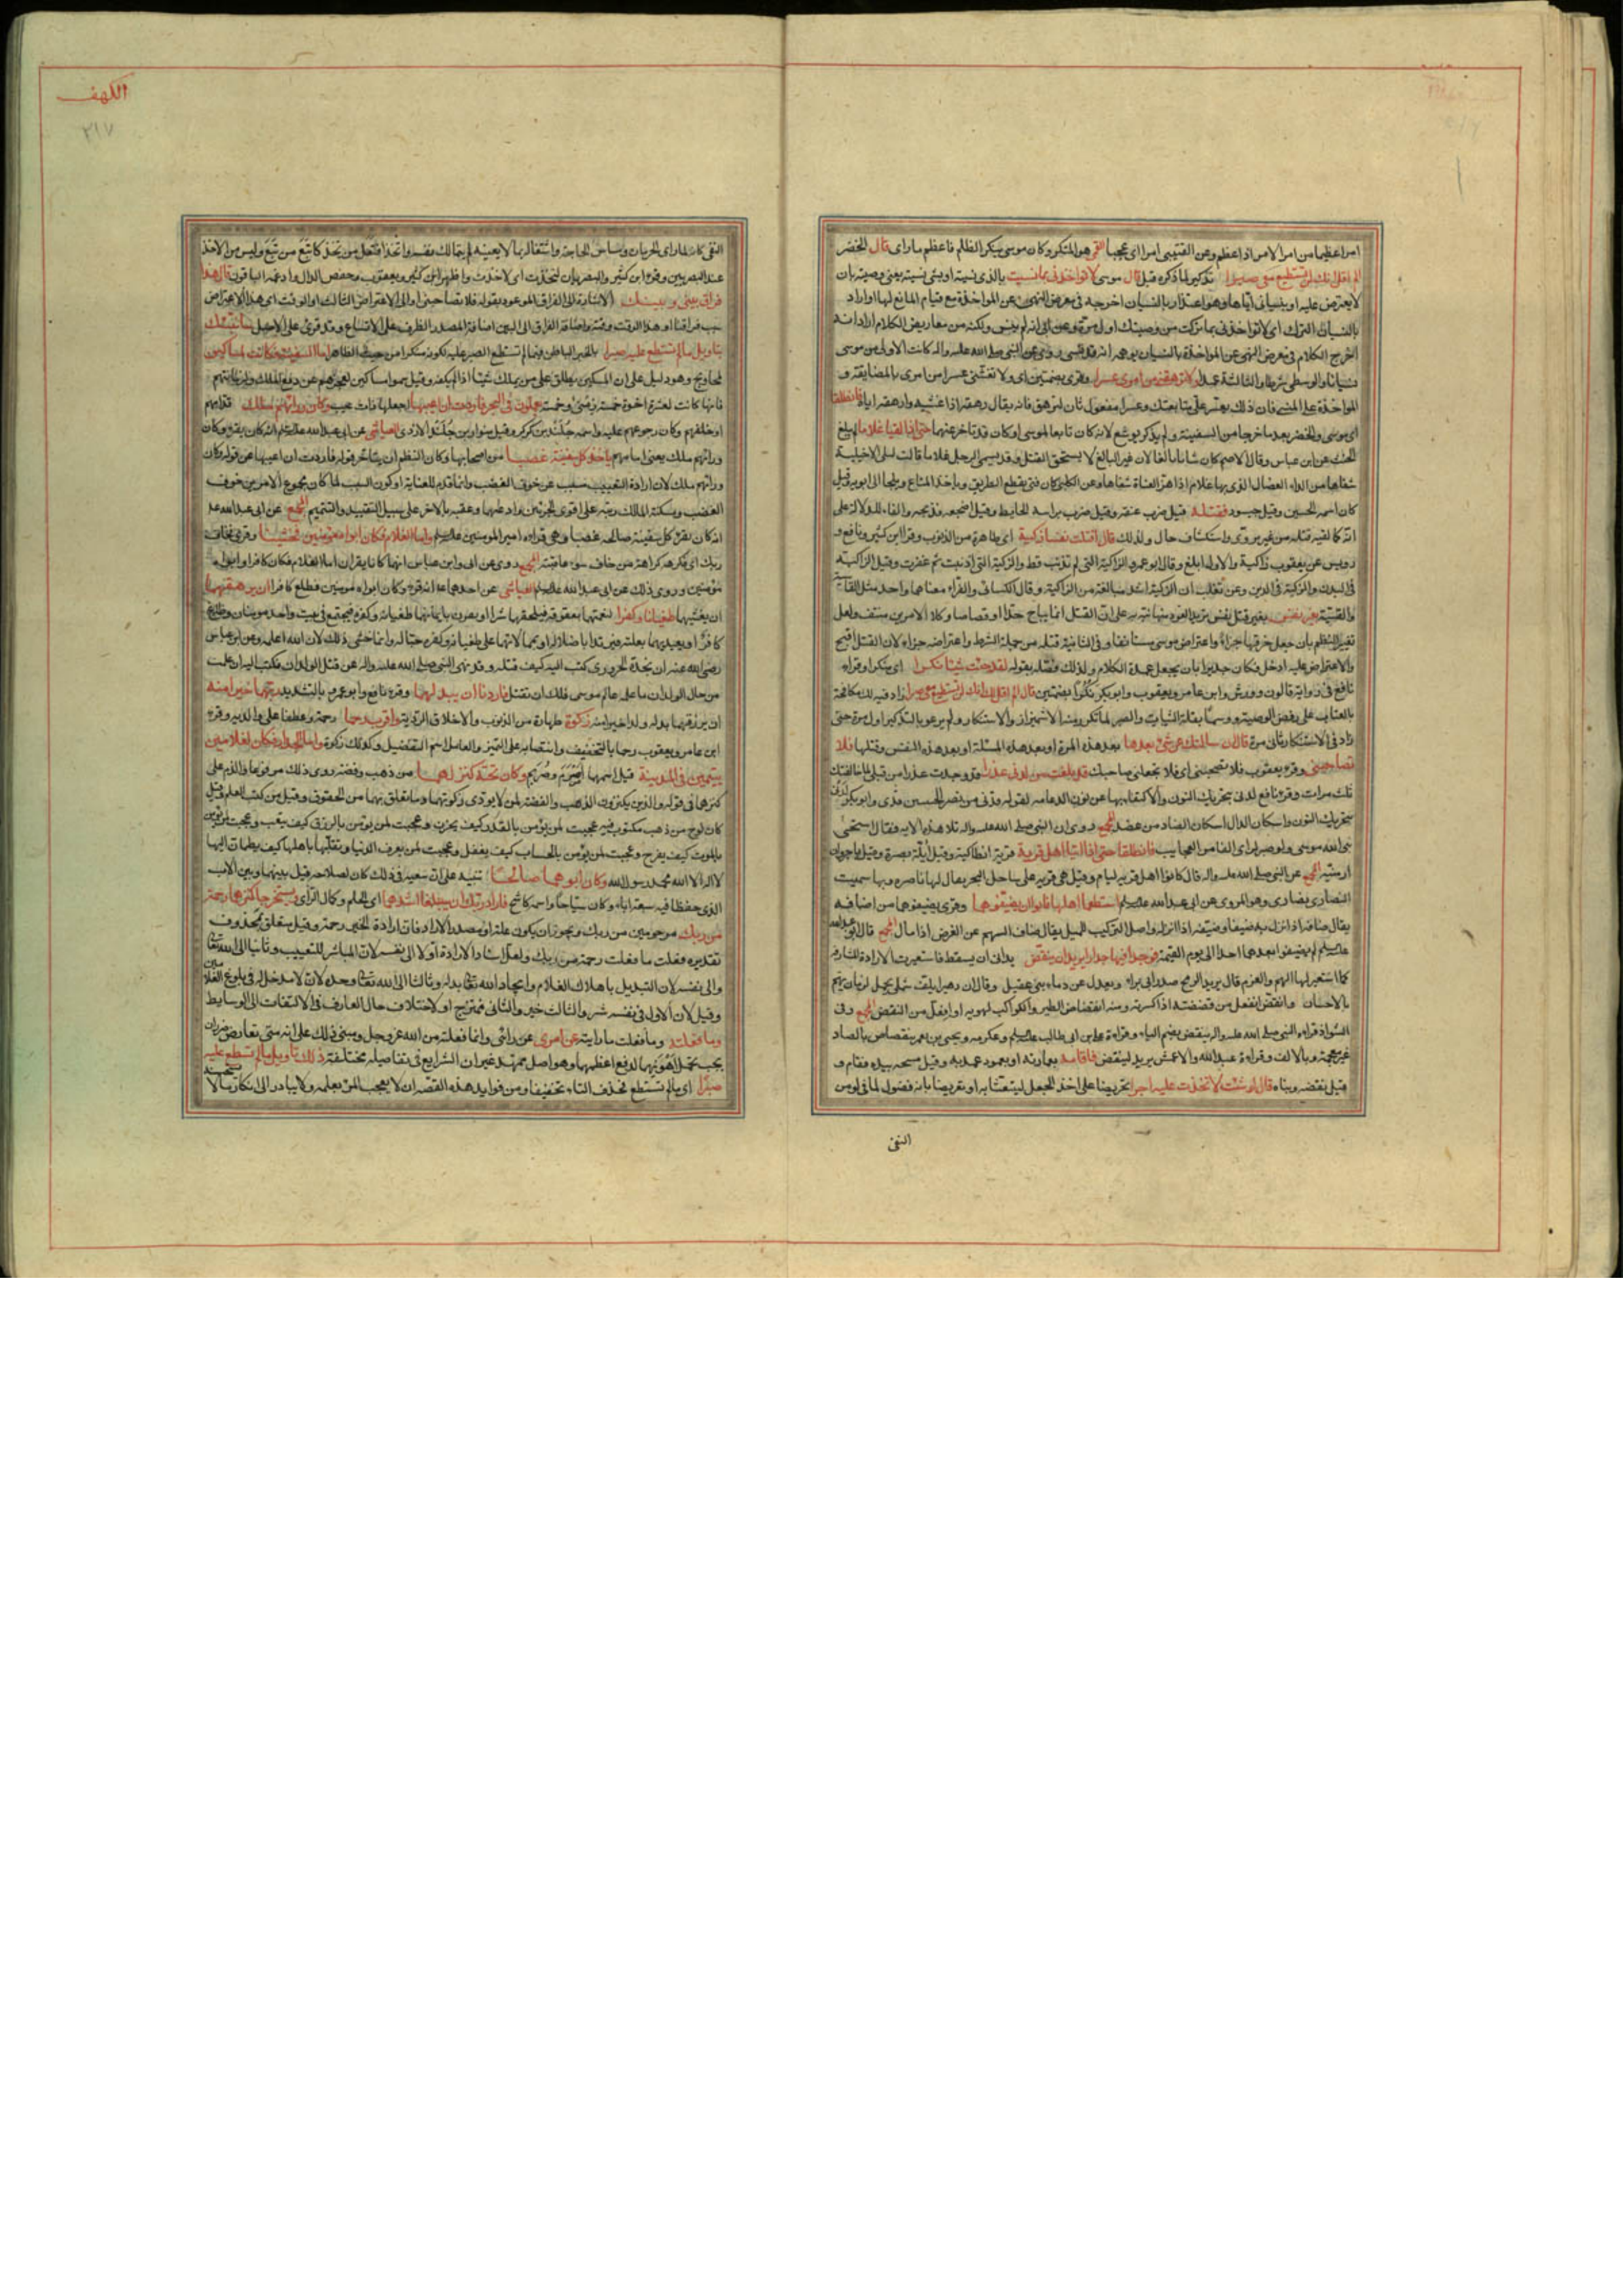 الكهف
٣١٧
امرا عظيما من امر الامر اذا عظم وعن القتيبى امرا اى عجبا القمى هو المنكر وكان موسى ينكر الظلم فاعظم ما راى قال الخضر
الم اقل انك لن تستطيع معى صبرا تذكير لما ذكره قبل قال موسى لا تؤاخذنى بما نسيت بالذى نسيته او بشئ نسيته يعنى وصيته بان
لا يعترض عليه او بنسيانى اياها وهو اعتذار بالنسيان اخرجه فى معرض النهى عن المواخذة مع قيام المانع لها او اراد
بالنسيان الترك اى لا تواخذنى بما تركت من وصيتك اول مرة وعن ابى انه لم ينس ولكنه من معاريض الكلام اراد انه
اخرج الكلام فى معرض النهى عن المواخذة بالنسيان يوهم انه قد نسى روى عن النبى صلى الله عليه واله كانت الاولى من موسى
نسيانا والوسطى شرطا والثالثة عمدا ولا ترهقنى من امرى عسرا وقرى بضمتين اى ولا تغشنى عسرا من امرى بالمضايقة و
المواخذة على المنسى فان ذلك يعسر على متابعتك وعسرا مفعول ثان لترهق فانه يقال رهقه اذا غشيه وارهقه اياه فانطلقا
اى موسى والخضر بعد ما خرجا من السفينة ولم يذكر يوشع لانه كان تابعا لموسى او كان قد تاخر عنهما حتى اذا لقيا غلاما لم يبلغ
الحنث عن ابن عباس وقال الاصم كان شابا بالغا لان غير البالغ لا يستحق القتل وقد يسمى الرجل غلاما قالت ليلى الاخيلية
شفاها من الداء العضال الذى بها غلام اذا هز القناة شفاها وعن الكلبى كان فتى يقطع الطريق وياخذ المتاع ويلجا الى ابويه قيل
كان اسمه الحسين وقيل جيسود فقتله قيل ضرب عنقه وقيل ضرب براسه الحايط وقيل اضجعه وذبحه والفاء للدلالة على
انه كما لقيه قتله من غير تروى واستكشاف حال ولذلك قال اقتلت نفسا زكية اى طاهرة من الذنوب وقرا ابن كثير ونافع و
رويس عن يعقوب زاكية والاول ابلغ وقال ابو عمرو الزاكية التى لم تذنب قط والزكية التى اذنبت ثم غفرت وقيل الزاكية
فى البدن والزكية فى الدين وعن ثعلب ان الزكية اشد مبالغة من الزاكية وقال الكسائى والفراء معناهما واحد مثل القاسية
والقسية بغير نفس بغير قتل نفس
نافع فى رواية قالون وورش وابن عامر ويعقوب وابو بكر نكرا بضمتين قال الم اقل لك انك لن تستطيع معى صبرا زاد فيه لك مكافحة
بالعتاب على رفض الوصية ووسما بقلة الثبات والصبر لما تكرر منه الاشمئزاز والاستنكار ولم يرعو بالتذكير اول مرة حتى
زاد فى الاستنكار ثانى مرة قال ان سالتك عن شئ بعدها بعد هذه المرة او بعد هذه المسئلة او بعد هذه النفس وقتلها فلا
تصاحبنى وقرء يعقوب فلا تصحبنى اى فلا تجعلنى صاحبك قد بلغت من لدنى عذرا قد وجدت عذرا من قبلى لما خالفتك
ثلث مرات وقرء نافع لدنى بتحريك النون والاكتفاء بها عن نون الدعامه
بتحريك النون واسكان الدال اسكان الضاد من عضد المجمع وروى ان النبى صلى الله عليه واله تلا هذه الاية فقال استحيى
نبى الله موسى ولو صبر لراى الفا من العجايب فانطلقا حتى اذا اتيا اهل قرية قرية انطاكية وقيل ابلة بصرة وقيل باجروان
ارمنية المجمع عن النبى صلى الله عليه واله قال كانوا اهل قرية ليام وقيل هى قرية على ساحل البحر يقال لها ناصره وبها سميت
النصارى نصارى وهو المروى عن ابى عبد الله عليه السلم استطعما اهلها فابوا ان يضيفوهما وقرى يضيفوهما من اضافه
يقال ضافه اذا نزل به ضيفا وضيفه اذا انزله واصل التركيب للميل يقال ضاف السهم عن الغرض اذا مال المجمع قال ابو عبد الله
عليه السلم لم يضيفوا بعدهما احدا الى يوم القيمة فوجدا فيها جدارا يريد ان ينقض يدانى ان يسقط فاستعيرت الارادة للمشارفه
كما استعير لها الهم والعزم قال يريد الرمح صدر ابى براء ويعدل عن دماء بنى عقيل وقال ان دهرا يلف شملى بجمل لزمان يهم
بالاحسان وانقض انفعل من قضضته اذا كسرته ومنه انقضاض الطير والكواكب لهويه او افعل من النقض المجمع وفى
الشواذ قراءة النبى صلى الله عليه واله ينقض بضم الياء وقراءة على بن ابى طالب عليه السلم وعكرمه ويحيى بن يعمر ينقاص بالصاد
غير معجمة وبالالف وقراءة عبد الله والاعمش يريد لينقض فاقامه بعمارته او بعمود عمده به وقيل مسحه بيده فقام و
قيل نقضه وبناه قال لو شئت لاتخذت عليه اجرا تحريضا على اخذ الجعل لينتعشا به او تعريضا بانه فضول لما فى لو من
النفى
النفى كانه لما راى الحرمان ومساس الحاجة واشتغاله بما لا يعنيه لم يتمالك نفسه واتخذ افتعل من تخذ كاتبع من تبع وليس من الاخذ
عند البصريين وقرء ابن كثير والبصريان لتخذت اى لاخذت واظهر ابن كثير ويعقوب وحفص الدال وادغمه الباقون قال هذا
فراق بينى وبينك الاشارة الى الفراق الموعود بقوله فلا تصاحبنى او الى الاعتراض الثالث او الوقت اى هذا الاعتراض
سبب فراقنا او هذا الوقت وقته واضافة الفراق الى البين اضافة المصدر الى الظرف على الاتساع وقد قرئ على الاصل سانبئك
بتاويل ما لم تستطع عليه صبرا بالخبر الباطن فيما لم تستطع الصبر عليه لكونه منكرا من حيث الظاهر اما السفينة فكانت لمساكين
لمحاويج وهو دليل على ان المسكين يطلق على من يملك شيئا اذا لم يكفه وقيل سموا مساكين لعجزهم عن دفع الملك او لزمانتهم
فانها كانت لعشرة اخوة خمسة زمنى وخمسة يعملون فى البحر فاردت ان اعيبها اجعلها ذات عيب وكان ورائهم ملك قدامهم
او خلفهم وكان رجوعهم عليه واسمه جلندى بن كركر وقيل سوار بن جلندا الازدى العياشى عن ابى عبد الله عليه السلم انه كان يقرء وكان
ورائهم ملك يعنى امامهم ياخذ كل سفينة غصبا من اصحابها وكان النظم ان يتاخر قوله فاردت ان اعيبها عن قوله وكان
ورائهم ملك لان ارادة التعييب مسبب عن خوف الغضب وانما قدم للعناية او لكون السبب لما كان مجموع الامرين خوف
الغصب ومسكنة الملاك رتبه على اقوى الجزئين وادعاهما وعقبه بالاخر على سبيل التقييد والتتميم المجمع عن ابى عبد الله عليه
انه كان يقرء كل سفينة صالحة غصبا وهى قراءة امير المومنين عليه السلم واما الغلام فكان ابواه مؤمنين فخشينا وقرئ فخاف
ربك اى فكره كراهة من خاف سوء عاقبته المجمع روى عن ابى وابن عباس انهما كانا يقران اما الغلام فكان كافرا وابواه
مؤمنين وروى ذلك عن ابى عبد الله عليه السلم العياشى عن احدهما عليهما السلم انه قرء وكان ابواه مومنين فطبع كافرا ان يرهقهما
ان يغشيهما طغيانا وكفرا لنعمتهما بعقوقه فيلحقهما شرا او يقرن بايمانهما طغيانه وكفره فيجتمع فى بيت واحد مومنان وطاغ
كافر او يعديهما بعلته فيرتدا باضلاله او بممالاته على طغيانه وكفره حبا له وانما خشى ذلك لان الله اعلمه وعن ابن عباس
رضى الله عنه ان نجدة الحرورى كتب اليه كيف قتله وقد نهى النبى صلى الله عليه واله عن قتل الولدان فكتب اليه ان علمت
من حال الولدان ما علمه عالم موسى فلك ان تقتل فاردنا ان يبدلهما وقرء نافع وابو عمرو بالتشديد ربهما خيرا منه
ان يرزقهما بدله ولدا خيرا منه زكوة طهارة من الذنوب والاخلاق الردية واقرب رحما رحمة وعطفا على والديه وقرء
ابن عامر ويعقوب رحما بالتخفيف وانتصابه على التميز والعامل اسم التفضيل وكذلك زكوة واما الجدار فكان لغلامين
يتيمين فى المدينة قيل اسمهما اصرم وصريم وكان تحته كنز لهما من ذهب وفضة روى ذلك مرفوعا والذم على
كنزهما فى قوله والذين يكنزون الذهب والفضة لمن لا يؤدى زكوتهما وما تعلق بهما من الحقوق وقيل من كتب العلم وقيل
كان لوح من ذهب مكتوب فيه عجبت لمن يؤمن بالقدر كيف يحزن وعجبت لمن يؤمن بالرزق كيف يتعب وعجبت لمن يؤمن
بالموت كيف يفرح وعجبت لمن يؤمن بالحساب كيف يغفل وعجبت لمن يعرف الدنيا وتقلبها باهلها كيف يطمان اليها
لا اله الا الله محمد رسول الله وكان ابوهما صالحا تنبيه على ان سعيه فى ذلك كان لصلاحه قيل بينهما وبين الاب
الذى حفظا فيه سبعة اباء وكان سياحا واسمه كاشح فاراد ربك ان يبلغا اشدهما اى الحلم وكمال الراى ويستخرجا كنزهما رحمة
من ربك مرحومين من ربك ويجوز ان يكون علة او مصدرا لاراد فان ارادة الخير رحمة وقيل متعلق بمحذوف
تقديره فعلت ما فعلت رحمة من ربك ولعل اسناد الارادة اولا الى نفسه لانه المباشر للتعييب وثانيا الى الله تعالى
والى نفسه لان التبديل باهلاك الغلام وايجاد الله تعالى بدله وثالثا الى الله تعالى وحده لانه لا مدخل له فى بلوغ الغلامين
وقيل لان الاول فى نفسه شر والثالث خير والثانى ممتزج او لاختلاف حال العارف فى الالتفات الى الوسايط
وما فعلته وما فعلت ما رايته عن امرى عن رائى وانما فعلته من الله عز وجل ومبنى ذلك على انه متى تعارض ضرران
يجب تحمل اهونهما لدفع اعظمهما وهو اصل ممهد غير ان الشرايع فى تفاصيله مختلفة ذلك تاويل ما لم تسطع عليه
صبرا اى ما لم تستطع فحذف التاء تخفيفا ومن فوايد هذه القصة ان لا يعجب المرء بعلمه ولا يبادر الى انكار ما لا